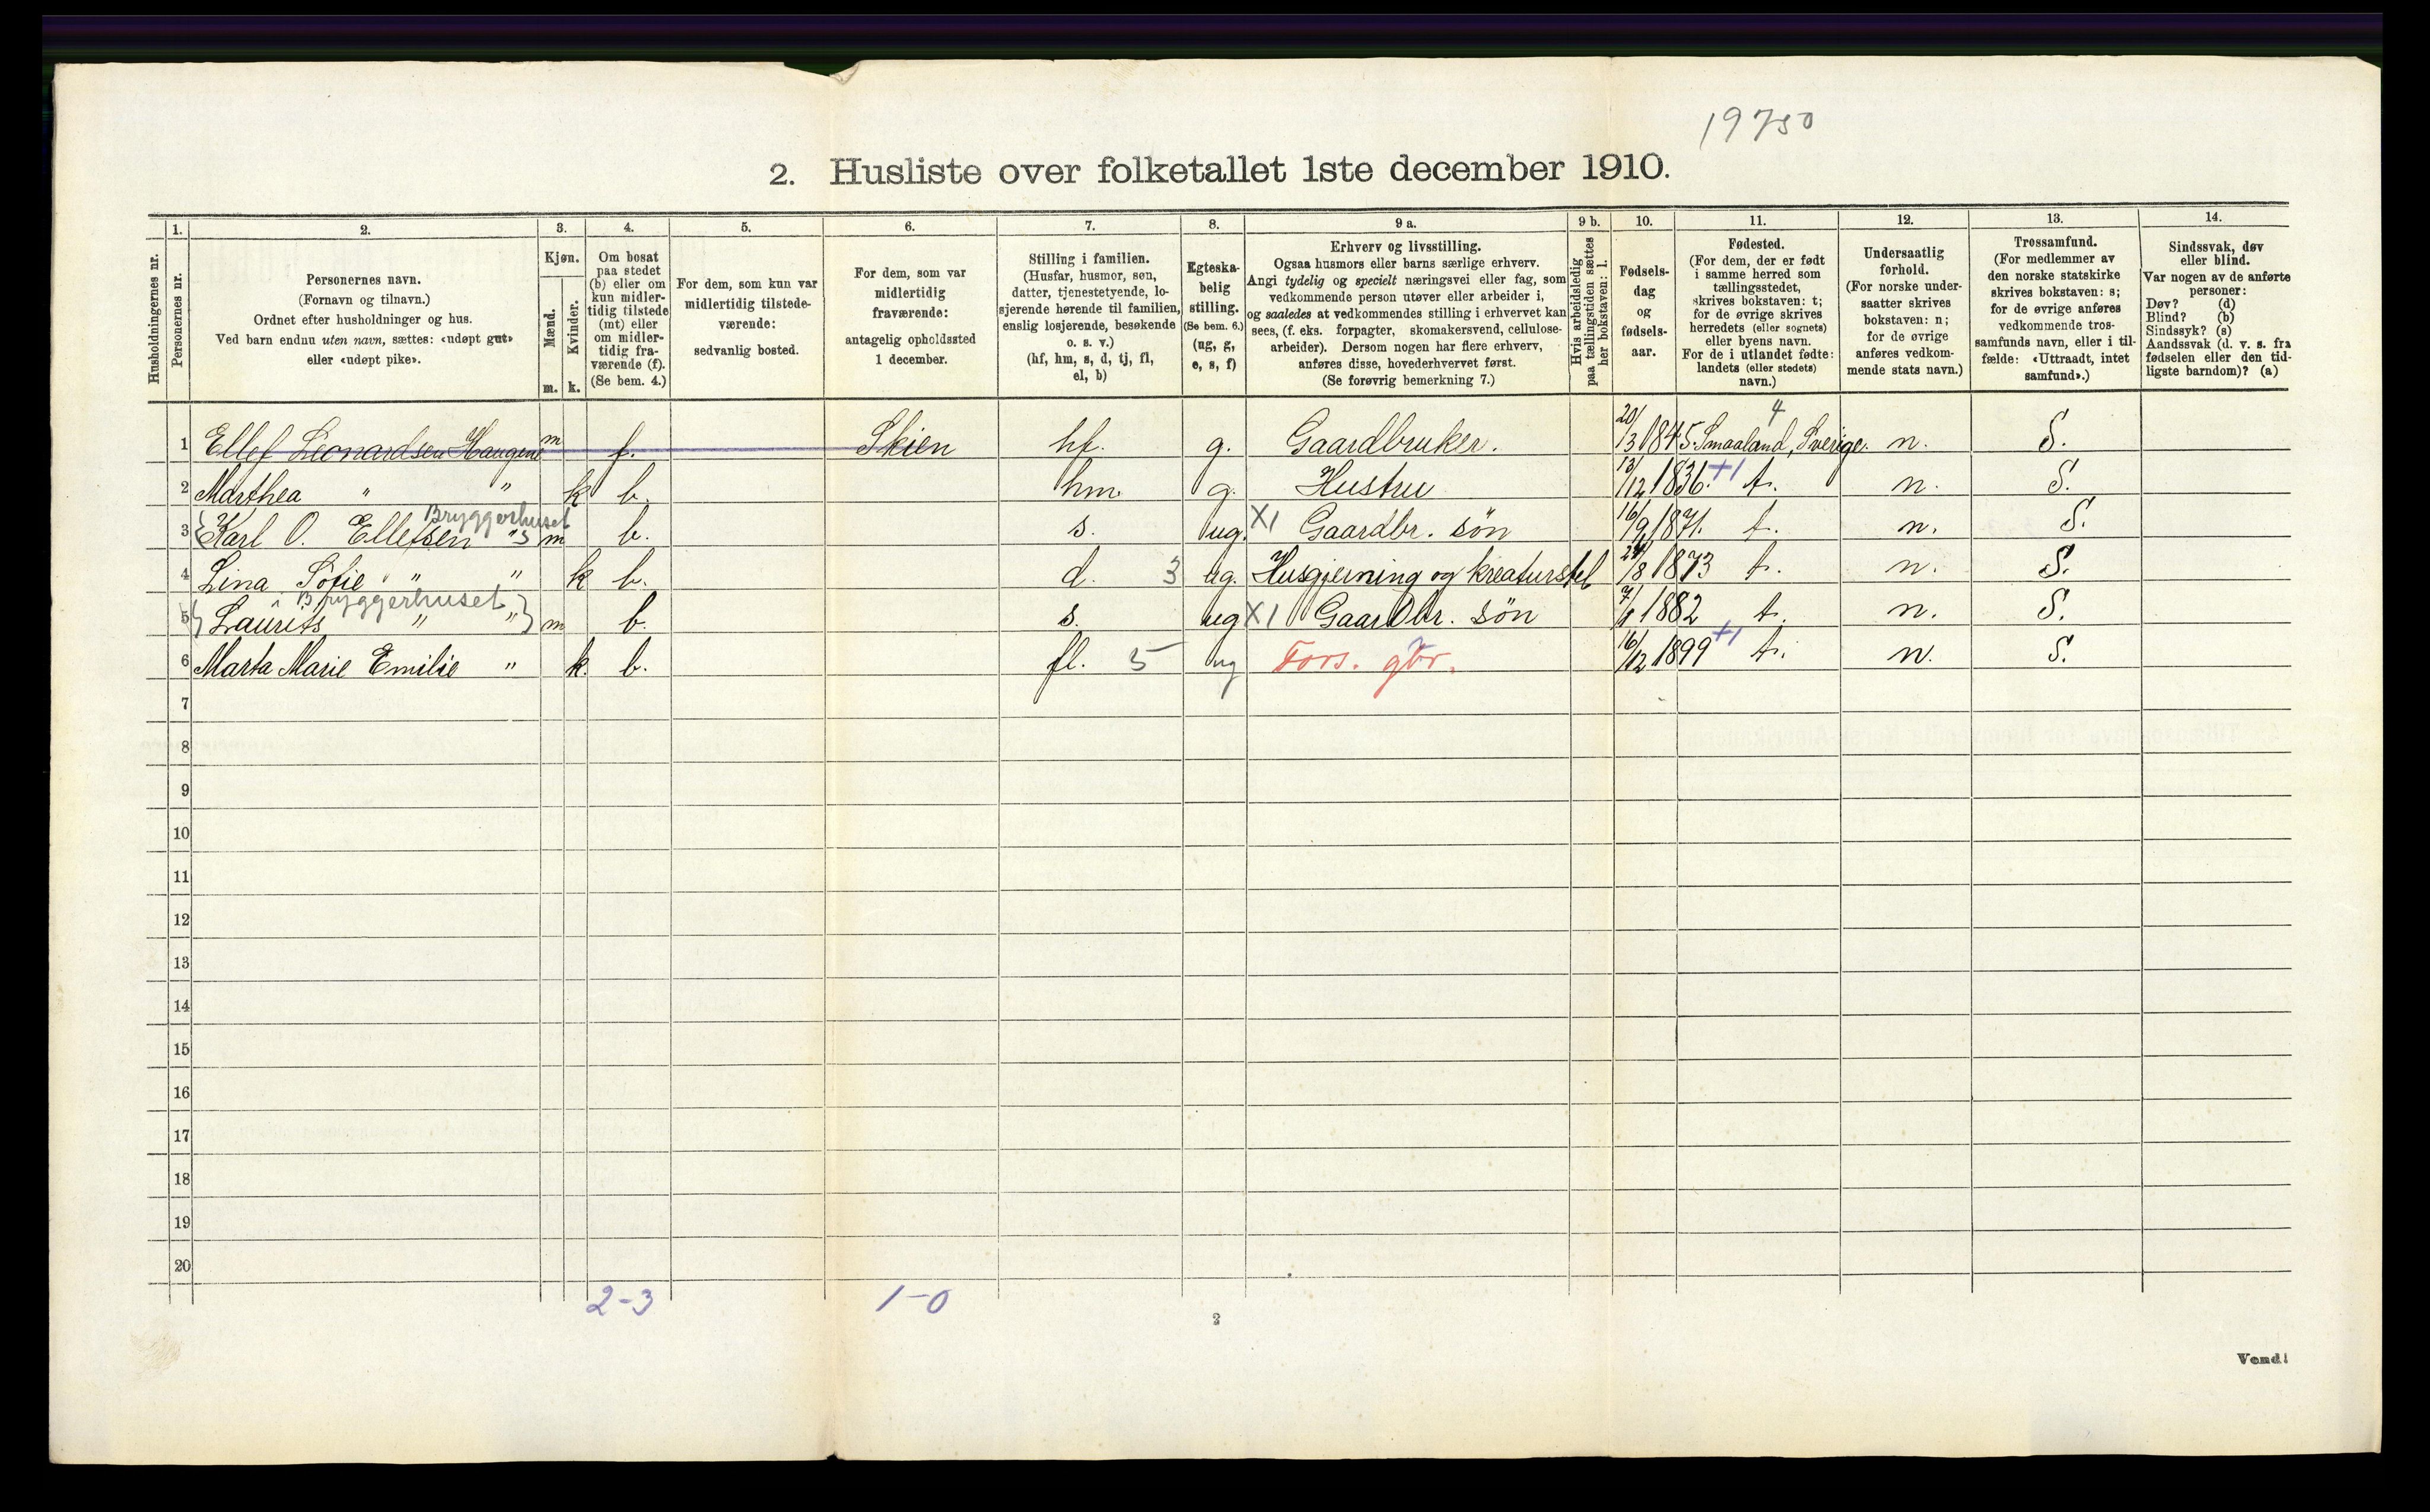 19750
2. Husliste over folketallet 1ste december 1910.
Husholdningernes nr.
1.
Personernes nr.
2.
Personernes navn.
(Fornavn og tilnavn.)
Ordnet efter husholdninger og hus.
Ved barn endnu uten navn, sættes: «udøpt gut»
eller «udøpt pike».
3.
Kjøn.
Mænd.
Kvinder.
m. k.
4.
Om bosat
paa stedet
(b) eller om
kun midler-
tidig tilstede
(mt) eller
om midler-
tidig fra-
værende (f).
(Se bem. 4.)
5.
For dem, som kun var
midlertidig tilstede-
værende:
sedvanlig bosted.
6.
For dem, som var
midlertidig
fraværende:
antagelig opholdssted
1 december.
7.
Stilling i familien.
(Husfar, husmor, søn,
datter, tjenestetyende, lo-
sjerende hørende til familien,
enslig losjerende, besøkende
o. s. v.)
(hf, hm, s, d, tj, fl,
el, b)
8.
Egteska-
belig
stilling.
(Se bem. 6.)
(ug, g,
e, s, f)
9 a.
Erhverv og livsstilling.
Ogsaa husmors eller barns særlige erhverv.
Angi tydelig og specielt næringsvei eller fag, som
vedkommende person utøver eller arbeider i,
og saaledes at vedkommendes stilling i erhvervet kan
sees, (f. eks. forpagter, skomakersvend, cellulose-
arbeider). Dersom nogen har flere erhverv,
anføres disse, hovederhvervet først.
(Se forøvrig bemerkning 7.)
9 b.
Hvis arbeidsledig
paa tællingstiden sættes
her bokstaven: l.
10.
Fødsels-
dag
og
fødsels-
aar.
11.
Fødested.
(For dem, der er født
i samme herred som
tællingsstedet,
skrives bokstaven: t;
for de øvrige skrives
herredets (eller sognets)
eller byens navn.
For de i utlandet fødte:
landets (eller stedets)
navn.)
12.
Undersaatlig
forhold.
(For norske under-
saatter skrives
bokstaven: n;
for de øvrige
anføres vedkom-
mende stats navn.)
13.
Trossamfund.
(For medlemmer av
den norske statskirke
skrives bokstaven: s;
for de øvrige anføres
vedkommende tros-
samfunds navn, eller i til-
fælde: «Uttraadt, intet
samfund».)
14.
Sindssvak, døv
eller blind.
Var nogen av de anførte
personer:
Døv? (d)
Blind? (b)
Sindssyk? (s)
Aandssvak (d. v. s. fra
fødselen eller den tid-
ligste barndom)? (a)
4
1 Ellef Leonardsen Haugene m f. Skien hf. g. Gaardbruker. 20/3 1845. Smaaland, Sverige. n. S.
2 Marthea " " k b. hm. g. Hustru 13/12 1836. +1 t. n. S.
Bryggerhuset
3 {Karl O. Ellefsen " } m b. s. ug. X1 Gaardbr. søn 16/9 1871. t. n. S.
4 Lina Sofie " " k b. d. 3 ug. Husgjerning og kreaturstel 1873 t. n. S.
Bryggerhuset
5 { Laurits " " } m b. s. ug X1 Gaardbr. søn 1882 t. n. S.
6 Marta Marie Emilie " k. b. fl. 5 ug Fors. gbr. 16/12 1899 +1 t. n. S.
7
8
9
10
11
12
13
14
15
16
17
18
19
20
2-3 1-0
2
Vend!